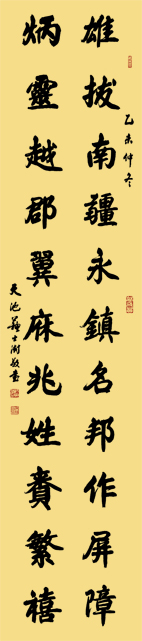 雄拔南疆永鎮名邦作屏障
炳靈越郡翼庥兆姓賚繁禧
乙未仲冬
天池蘇士澍敬書